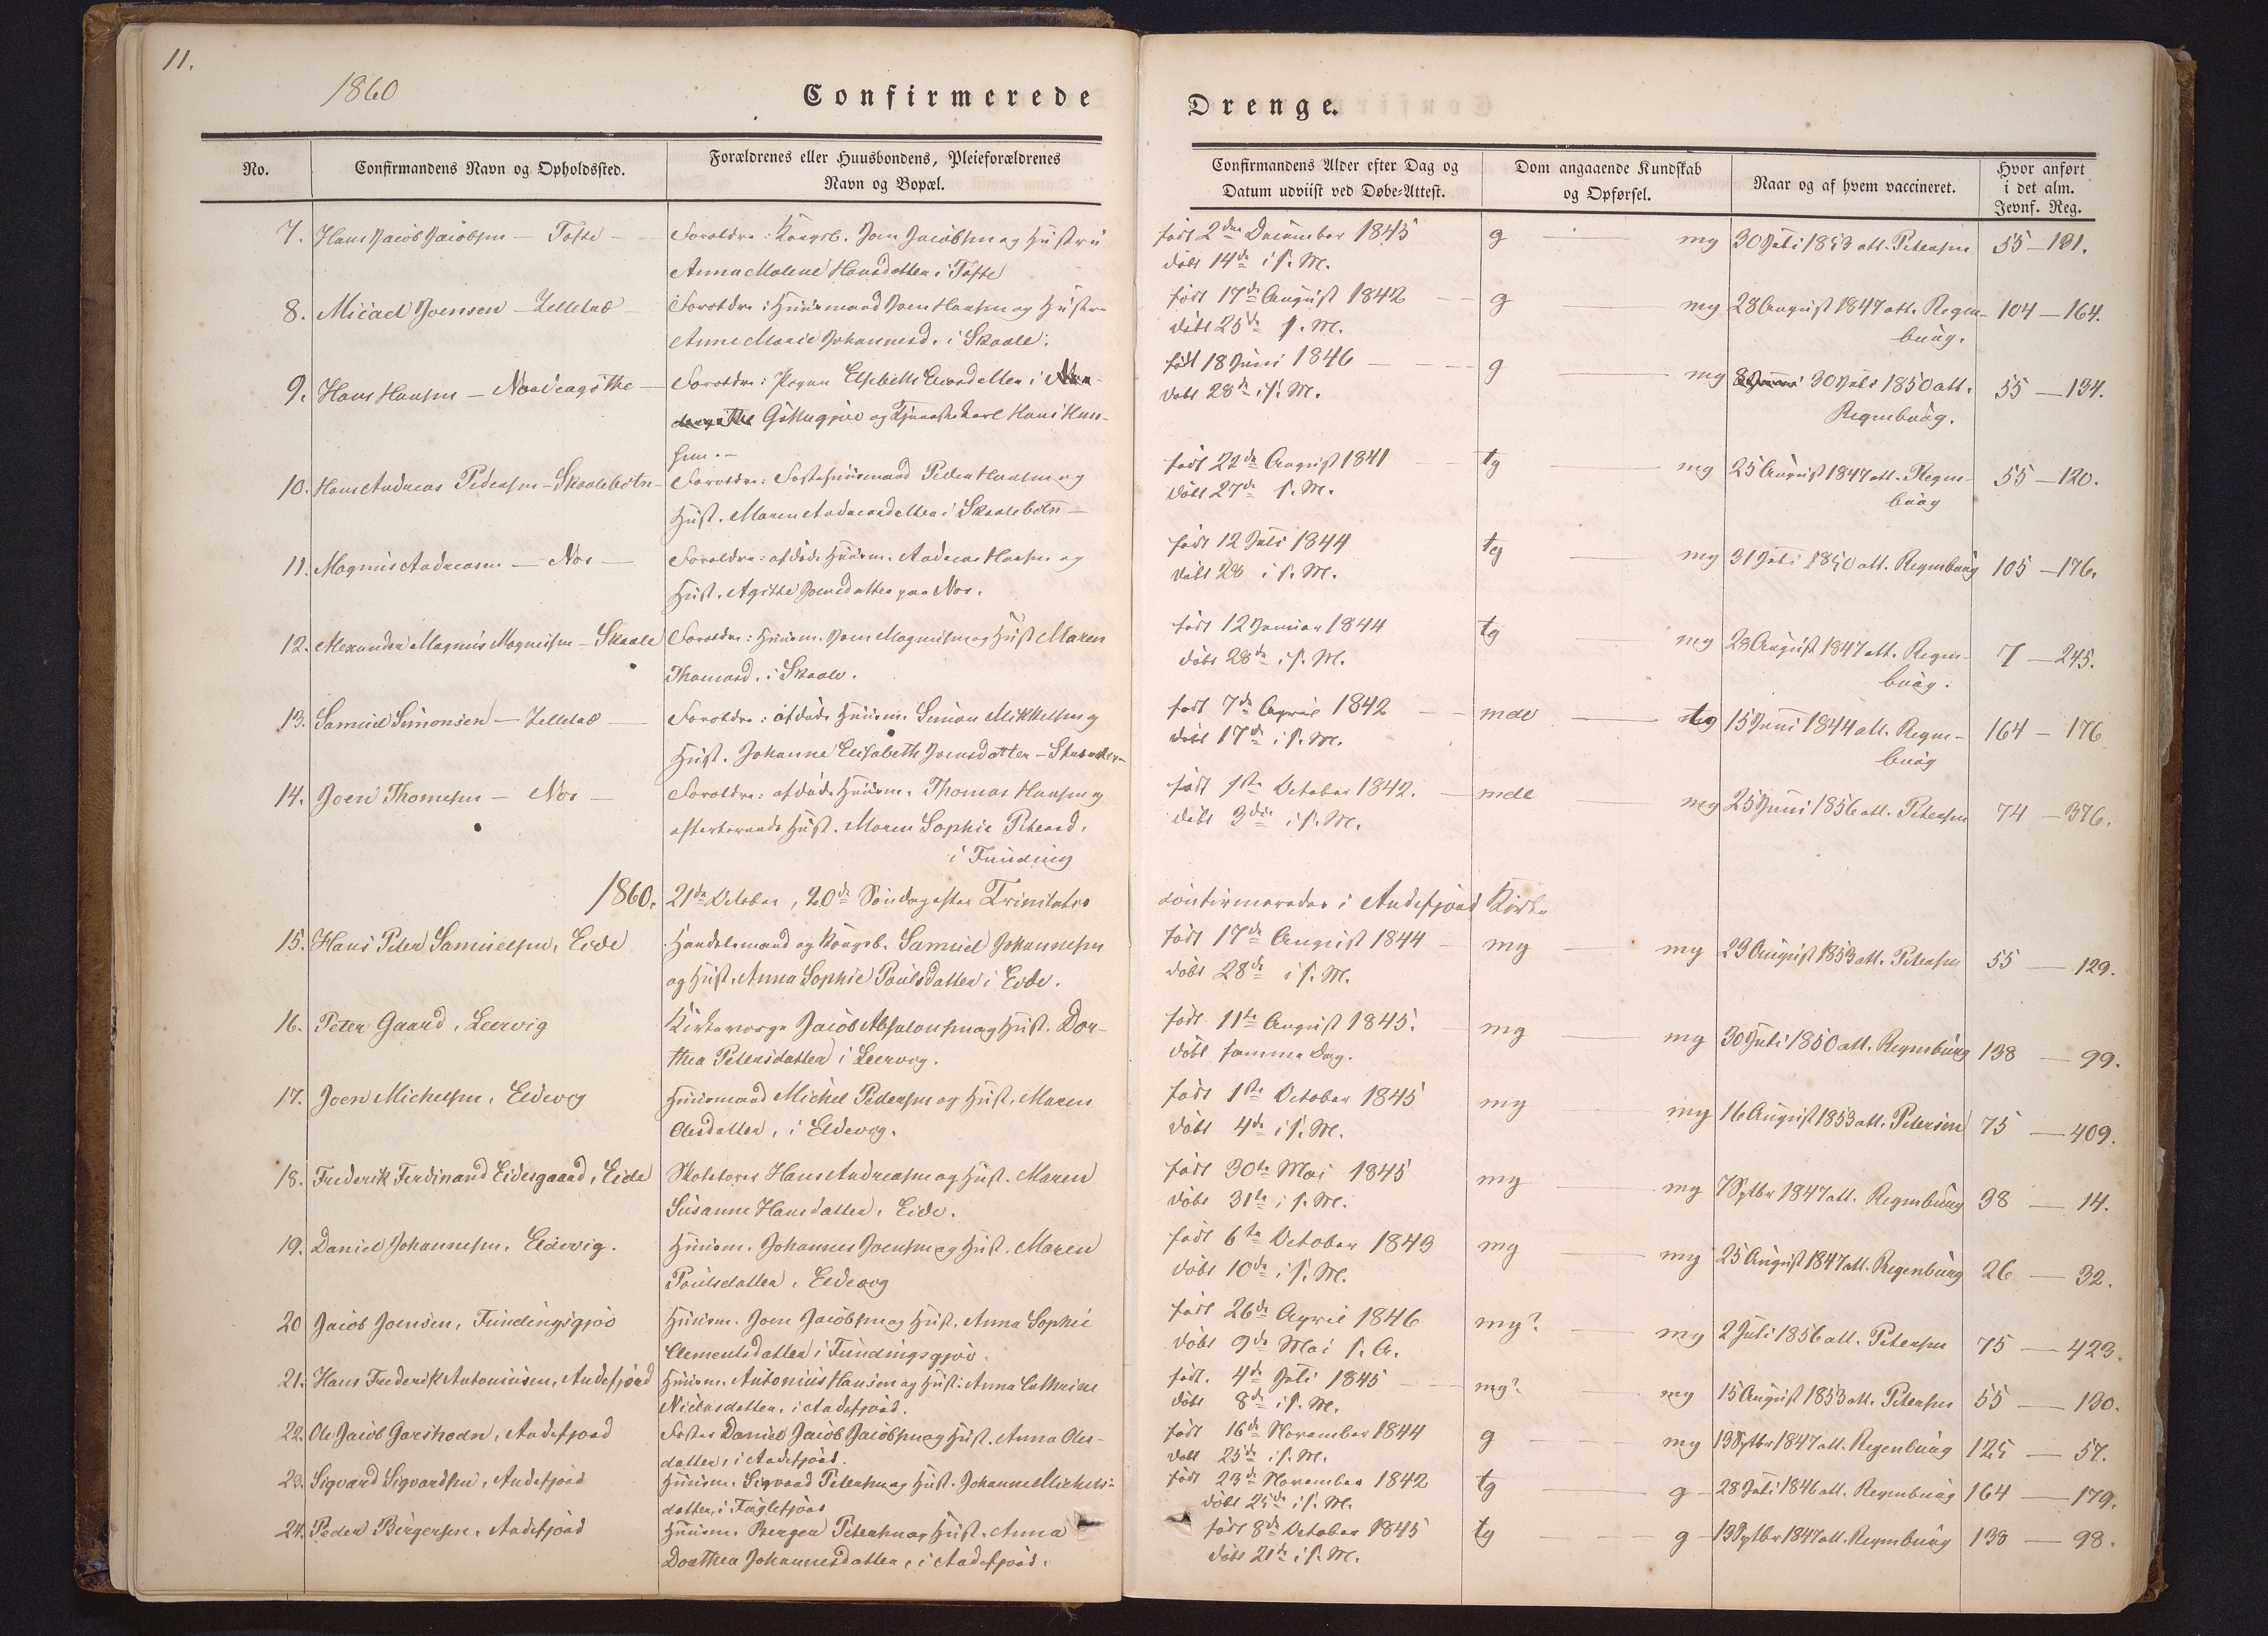 11.
1860
Confirmerede
Drenge.
No.
Confirmandens Navn og Opholdssted.
Forældrenes eller Huusbondens, Pleieforældrenes
Navn og Bopæl.
Confirmandens Alder efter Dag og
Datum udviist ved Døbe-Attest.
Dom angaaende Kundskab
og Opførsel.
Naar og af hvem vaccineret.
Hvor anført
i det alm.
Jevnf. Reg.
7. Hans Jacob Jacobsen — Tofte
Forældre: Kongsb. Joen Jacobsen og Hustru
Anna Malene Hansdatter i Tofte
født 2den December 1845
døbt 14de i s. M.
g — mg
30 Juli 1853 att. Petersen
55 — 131.
8. Micael Joensen — Zelletræ
Forældre: Huusmand Joen Hansen og Hustru
Anne Marie Johannesd. i Skaale.
født 17de August 1842
døbt 25de s. M.
g — mg
28 August 1847 att. Regen-
burg.
104 — 164.
9. Hans Hansen — Nordragøthe
Forældre: Pigen Elsbeth Eversdatter i
Gøthegjov og Tjenestekarl Hans Han-
sen. —
født 18 Juni 1846
døbt 28de i s. M.
g — mg
30 Juli 1850 att.
Regenburg.
55 — 134.
10. Hans Andreas Pedersen — Skaalebotn
Forældre: Fæstehuusmand Peder Hansen og
Hust. Maren Andreasdatter i Skaalebotn —
født 22de August 1841
døbt 27de s. M.
tg — mg
25 August 1847 att. Regen-
burg
55 — 120.
11. Magnus Andreasen — Nos —
Forældre: afdøde Huusm. Andreas Hansen og
Hust. Agitte Joensdatter paa Nos.
født 12 Juli 1844
døbt 28 i s. M.
tg — mg
31 Juli 1850 att. Regenburg
105 — 176.
12. Alexander Magnus Magnussen — Skaale
Forældre: Huusm. Joen Magnussen og Hust Maren
Thomasd. i Skaale.
født 12 Januar 1844
døbt 28de i s. M.
tg — mg
28 August 1847 att. Regen-
burg.
7 — 245.
13. Samuel Simonsen — Zelletræ
Forældre: afdøde Huusm. Simon Mikkelsen og
Hust. Johanne Elisabeth Joensdatter —
født 7de April 1842
døbt 17de i s. M.
mdl — tg
15 Juni 1844 att. Regen-
burg
164 — 176
14. Joen Thomsen — Nos —
Forældre: afdøde Huusm. Thomas Hansen og
efterlevende Hust. Maren Sophie Petersd.
i Funding
født 1ste October 1842.
døbt 3die i s. M.
mdl — mg
25 Juni 1856 att. Petersen
74 — 376.
1860. 21de October, 20de Søndag efter Trinitatis
confirmeredes i Andefjord Kirke
15. Hans Peter Samuelsen, Eide
Handelsmand og Kongsb. Samuel Johannesen
og Hust. Anna Sophie Poulsdatter i Eide.
født 17de August 1844
døbt 28de i s. M.
mg — mg
23 August 1853 att. Petersen
55 — 129.
16. Peter Gaard, Leervig
Kirkeværge Jacob Absalonsen og Hust. Dor-
thea Petersdatter i Leervig.
født 11te August 1845.
døbt samme Dag.
mg — mg
30 Juli 1850 att. Regenburg
138 — 99.
17. Joen Michelsen, Eldevig
Huusmand Michel Pedersen og Hust. Maren
Olesdatter, i Eldevig.
født 1ste October 1845
døbt 4de i s. M.
mg — mg
16 August 1853 att. Petersen
75 — 409.
18. Frederik Ferdinand Eidesgaard, Eide
Skoleholder Hans Andreasen og Hust. Maren
Susanne Hansdatter, Eide.
født 30te Mai 1845
døbt 31te i s. M.
mg — mg
7 Sptbr 1847 att. Regenburg
38 — 14.
19. Daniel Johannesen, Eldevig.
Huusm. Johannes Joensen og Hust. Maren
Poulsdatter, Eldevig
født 6te October 1843
døbt 10de i s. M.
mg — mg
25 August 1847 att. Regenburg
26 — 32.
20 Jacob Joensen, Fundingsgjov
Huusm. Joen Jacobsen og Hust. Anna Sophie
Clementsdatter i Fundingsgjov.
født 26de April 1846
døbt 9de Mai s. A.
mg? — mg
2 Juli 1856 att. Petersen
75 — 423.
21. Hans Frederik Antoniusen, Andefjord
Huusm. Antonius Hansen og Hust. Anna Cathrine
Niclasdatter, i Andefjord.
født. 4de Juli 1845
døbt 8de i s. M.
mg? — mg
15 August 1853 att. Petersen
55 — 130.
22. Ole Jacob Garshodn, Andefjord
Fæster Daniel Jacob Jacobsen og Hust. Anna Oles-
datter, i Andefjord.
født 16de November 1844
døbt 25de i s. M.
g — mg
13 Sptbr 1847 att. Regenburg
125 — 57.
23. Sigvard Sigvardsen, Andefjord
Huusm. Sigvard Petersen og Hust. Johanne Michels-
datter, i Fuglefjord
født 23de November 1842
døbt 25de i s. M.
tg — g
28 Juli 1846 att. Regenburg
164 — 179.
24. Peder Bergersen, Andefjord
Huusm. Berger Petersen og Hust. Anna
Dorthea Johannesdatter, i Andefjord.
født 8de October 1845
døbt 21de i s. M.
tg — g
13 Sptbr 1847 att. Regenburg
138 — 98.